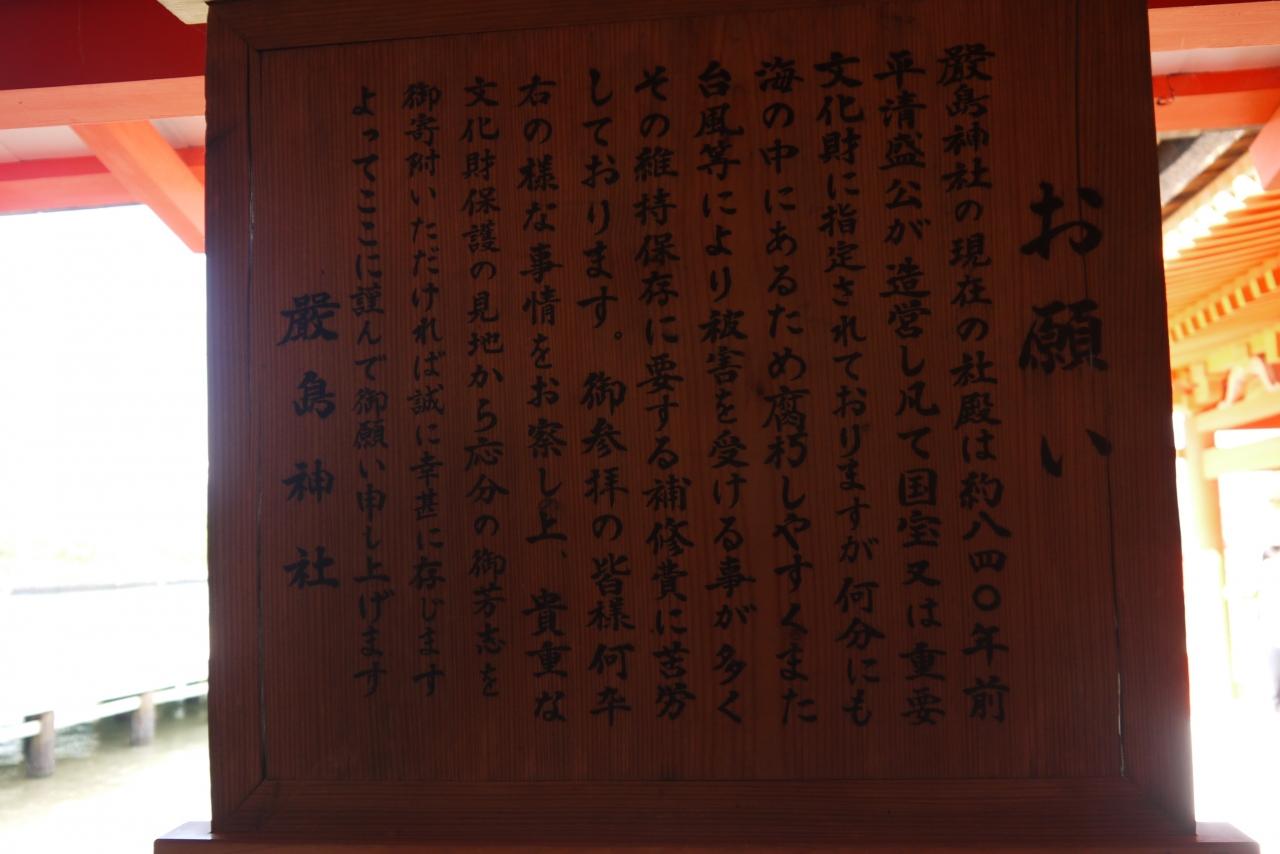 お願い
厳島神社の現在の社殿は約八四〇年前
平清盛公が造営し凡て国宝又は重要
文化財に指定されておりますが何分にも
海の中にあるため腐朽しやすくまた
台風等により被害を受ける事が多く
その維持保存に要する補修費に苦労
しております。御参拝の皆様何卒
右の様な事情をお察し上、貴重な
文化財保護の見地から応分の御芳志を
御寄附いただければ誠に幸甚に存じます
よってここに謹んで御願い申し上げます
嚴島神社